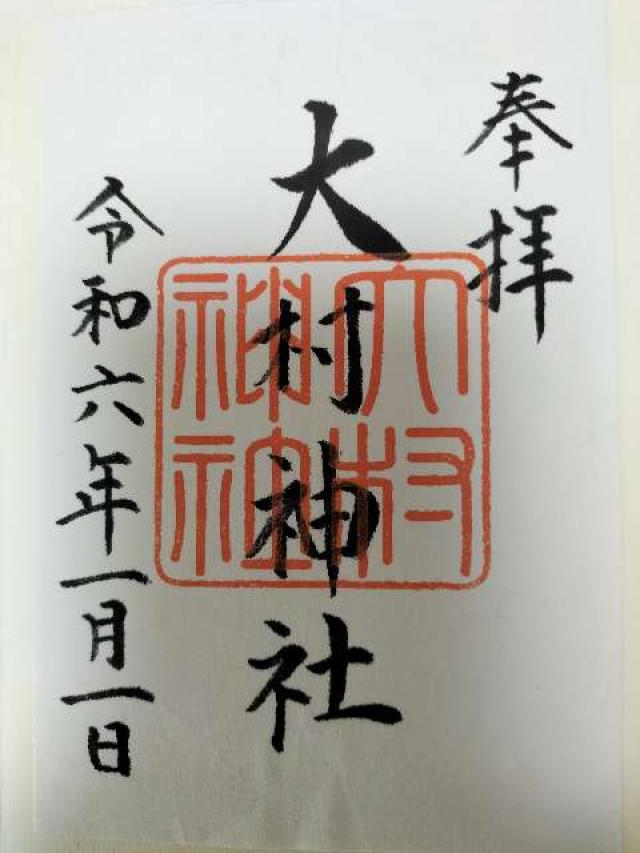 奉拝
大村神社
大村
神社
令和六年一月一日